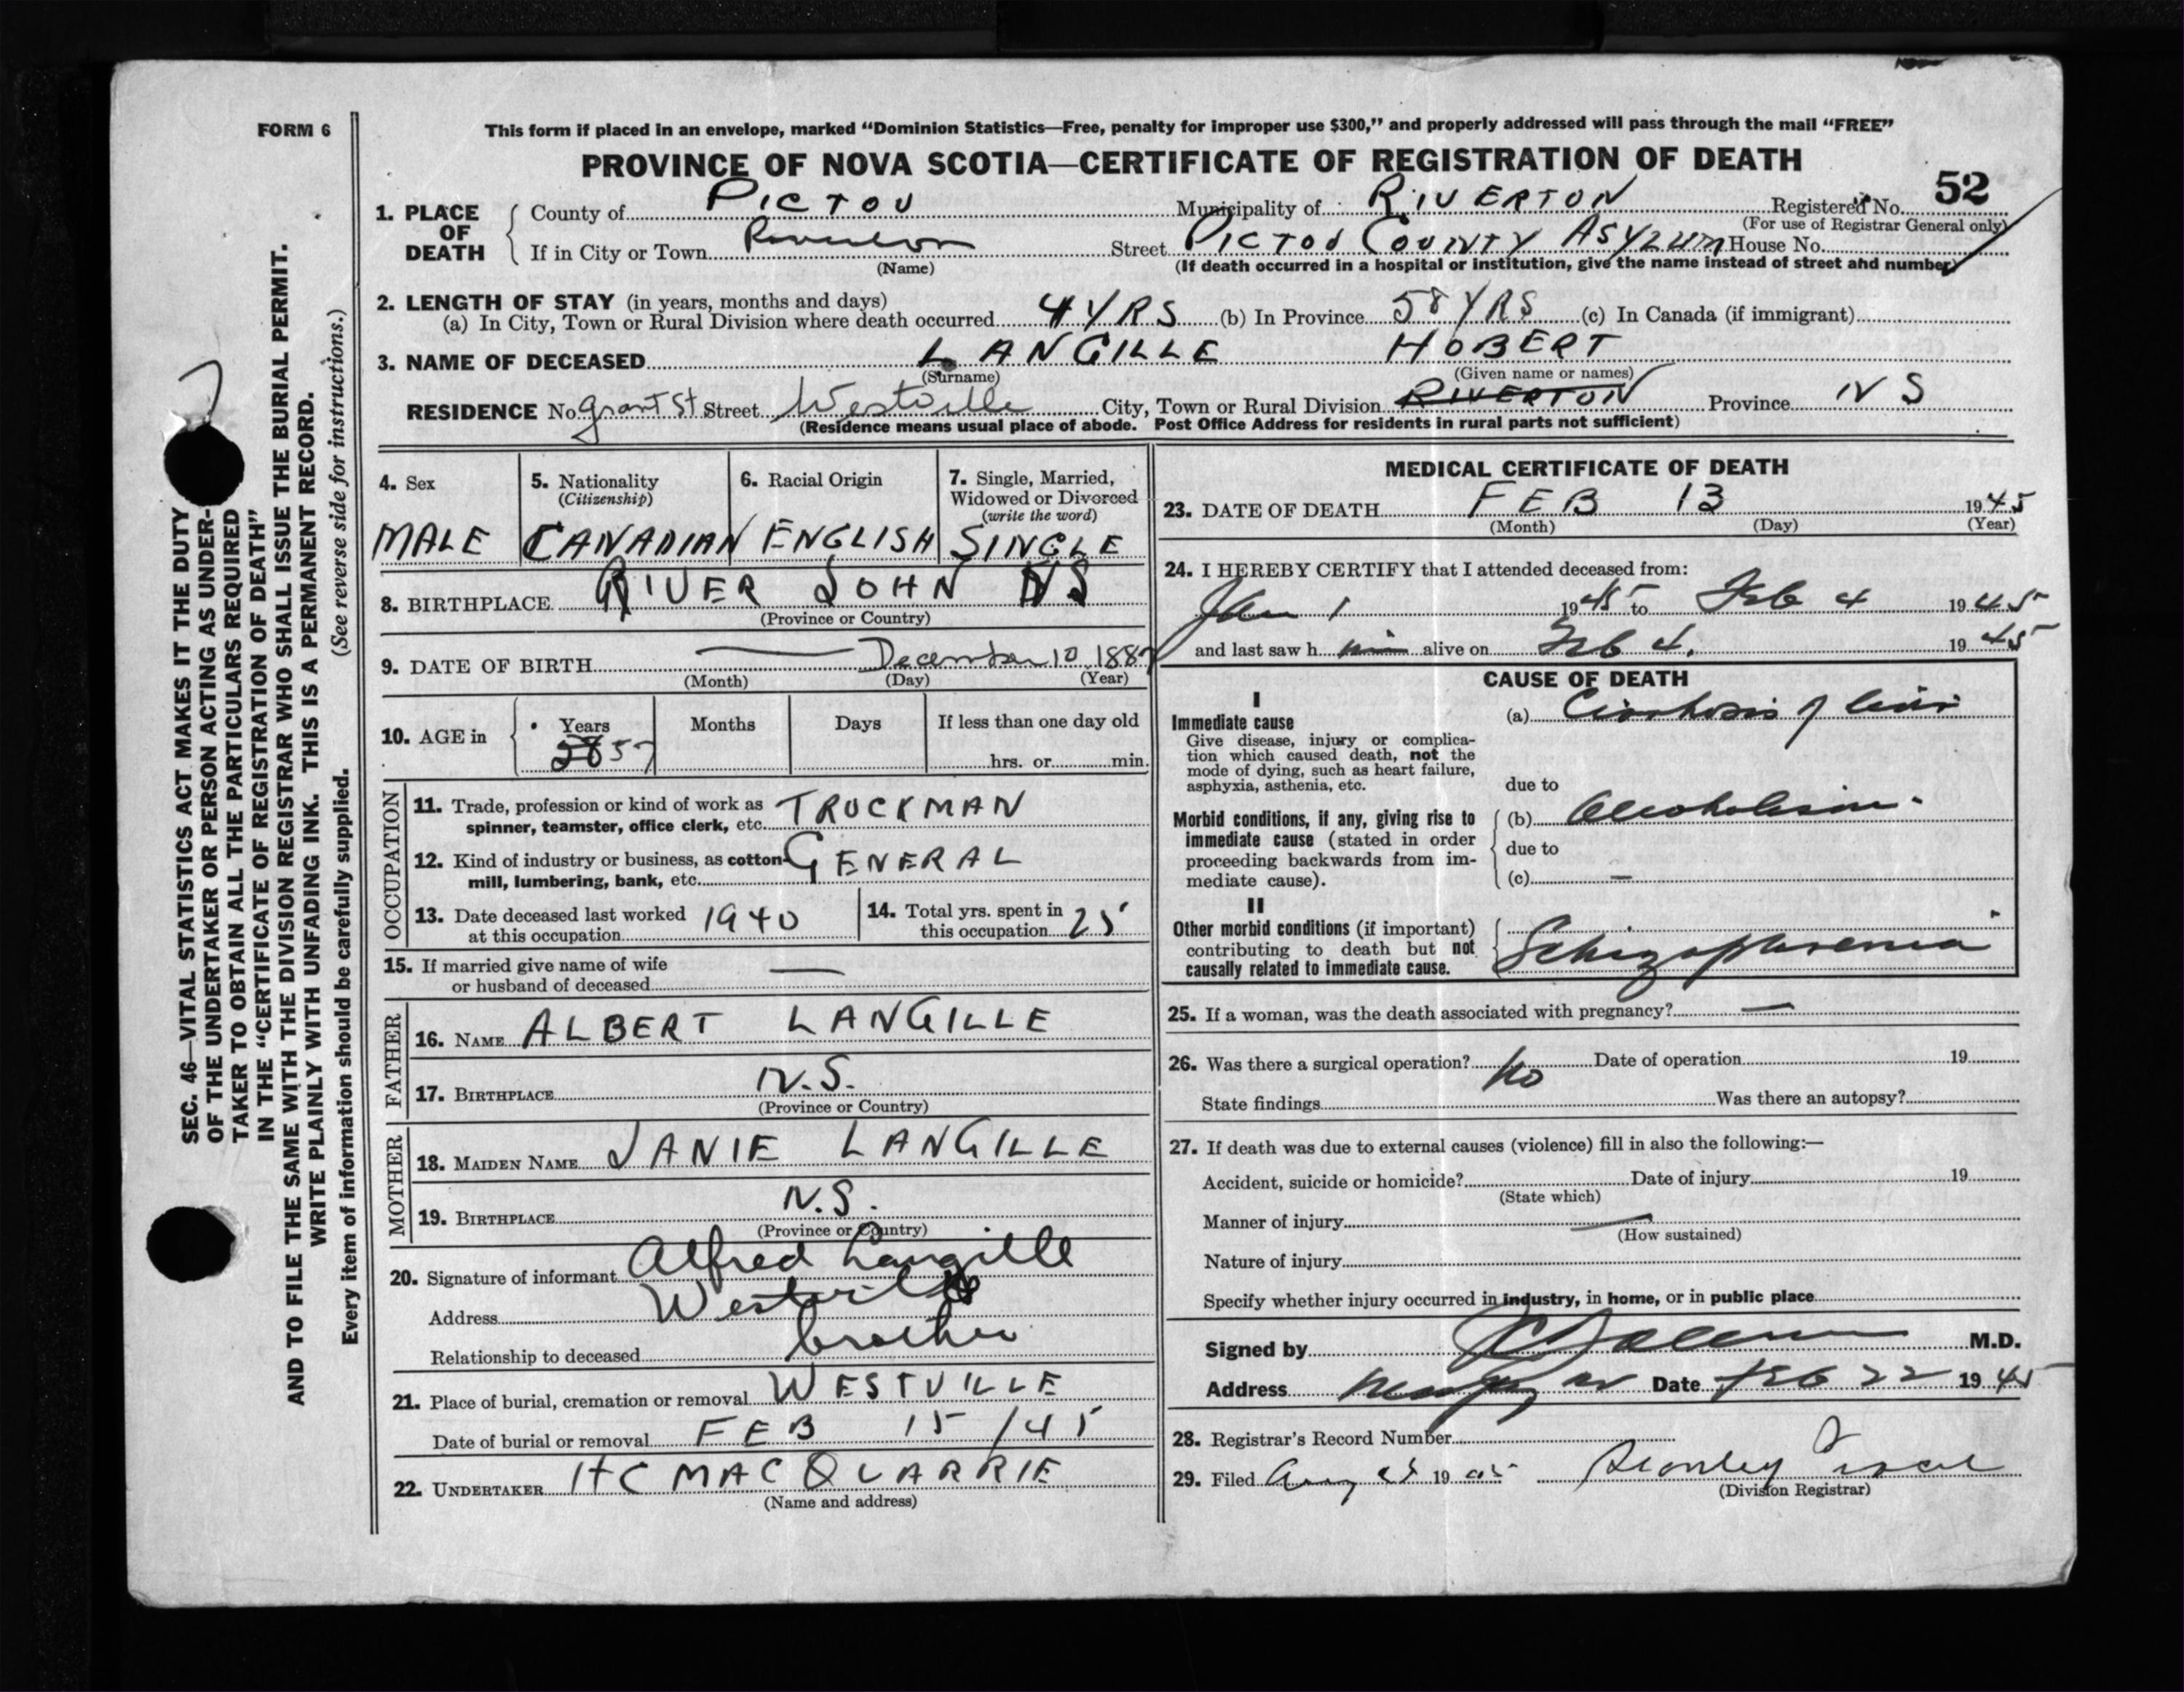 FORM 6
This form if placed in an envelope, marked "Dominion Statistics—Free, penalty for improper use $300," and properly addressed will pass through the mail "FREE"
PROVINCE OF NOVA SCOTIA—CERTIFICATE OF REGISTRATION OF DEATH
52
1. PLACE OF DEATH
County of PICTOU Municipality of RIVERTON Registered No.
(For use of Registrar General only)
If in City or Town Riverton Street PICTOU COUNTY ASYLUM House No.
(Name) (If death occurred in a hospital or institution, give the name instead of street and number)
2. LENGTH OF STAY (in years, months and days)
(a) In City, Town or Rural Division where death occurred 4 YRS (b) In Province 58 YRS (c) In Canada (if immigrant)
3. NAME OF DECEASED LANGILLE HOBERT
(Surname) (Given name or names)
RESIDENCE No Grant St Street Westville City, Town or Rural Division RIVERTON Province N S
(Residence means usual place of abode. Post Office Address for residents in rural parts not sufficient)
4. Sex
MALE
5. Nationality
(Citizenship)
CANADIAN
6. Racial Origin
ENGLISH
7. Single, Married,
Widowed or Divorced
(write the word)
SINGLE
8. BIRTHPLACE RIVER JOHN NS
(Province or Country)
9. DATE OF BIRTH December 10 1887
(Month) (Day) (Year)
10. AGE in
Years Months Days If less than one day old
57 hrs. or min.
OCCUPATION
11. Trade, profession or kind of work as
spinner, teamster, office clerk, etc. TRUCKMAN
12. Kind of industry or business, as cotton-
mill, lumbering, bank, etc. GENERAL
13. Date deceased last worked
at this occupation 1940
14. Total yrs. spent in
this occupation 25
15. If married give name of wife
or husband of deceased —
FATHER
16. NAME ALBERT LANGILLE
17. BIRTHPLACE N.S.
(Province or Country)
MOTHER
18. MAIDEN NAME JANIE LANGILLE
19. BIRTHPLACE N.S.
(Province or Country)
20. Signature of informant Alfred Langille
Address Westville
Relationship to deceased brother
21. Place of burial, cremation or removal WESTVILLE
Date of burial or removal FEB 15/45
22. UNDERTAKER HC MACQUARRIE
(Name and address)
MEDICAL CERTIFICATE OF DEATH
23. DATE OF DEATH FEB 13 1945
(Month) (Day) (Year)
24. I HEREBY CERTIFY that I attended deceased from:
Jan 1 1945 to Feb 4 1945
and last saw h im alive on Feb 4. 1945
CAUSE OF DEATH
I
Immediate cause
Give disease, injury or complica-
tion which caused death, not the
mode of dying, such as heart failure,
asphyxia, asthenia, etc.
(a) Cirrhosis of liver
due to
Morbid conditions, if any, giving rise to
immediate cause (stated in order
proceeding backwards from im-
mediate cause).
(b) Alcoholism.
due to
(c) —
II
Other morbid conditions (if important)
contributing to death but not
causally related to immediate cause.
Schizophrenia
25. If a woman, was the death associated with pregnancy? —
26. Was there a surgical operation? No Date of operation 19
State findings Was there an autopsy?
27. If death was due to external causes (violence) fill in also the following:—
Accident, suicide or homicide? Date of injury 19
(State which)
Manner of injury —
(How sustained)
Nature of injury
Specify whether injury occurred in industry, in home, or in public place
Signed by M.D.
Address Date FEB 22 1945
28. Registrar's Record Number
29. Filed Aug 19 45 Stanley
(Division Registrar)
SEC. 46—VITAL STATISTICS ACT MAKES IT THE DUTY
OF THE UNDERTAKER OR PERSON ACTING AS UNDER-
TAKER TO OBTAIN ALL THE PARTICULARS REQUIRED
IN THE "CERTIFICATE OF REGISTRATION OF DEATH"
AND TO FILE THE SAME WITH THE DIVISION REGISTRAR WHO SHALL ISSUE THE BURIAL PERMIT.
WRITE PLAINLY WITH UNFADING INK. THIS IS A PERMANENT RECORD.
Every item of information should be carefully supplied. (See reverse side for instructions.)